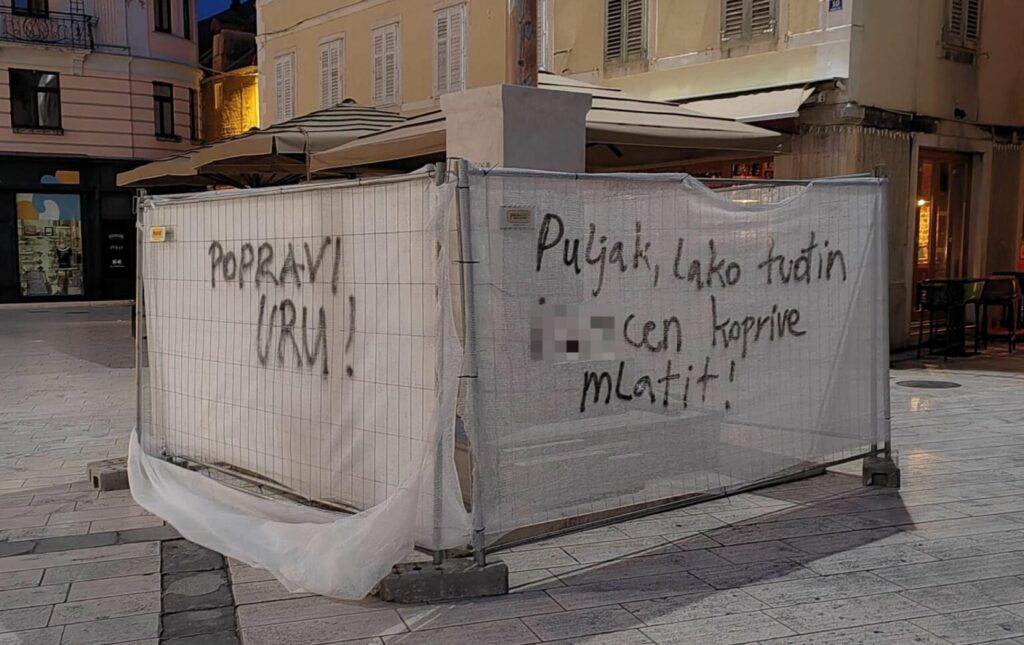 POPRAVI
URU!
Puljak, lako tuđin
cen koprive
mlatit!
10